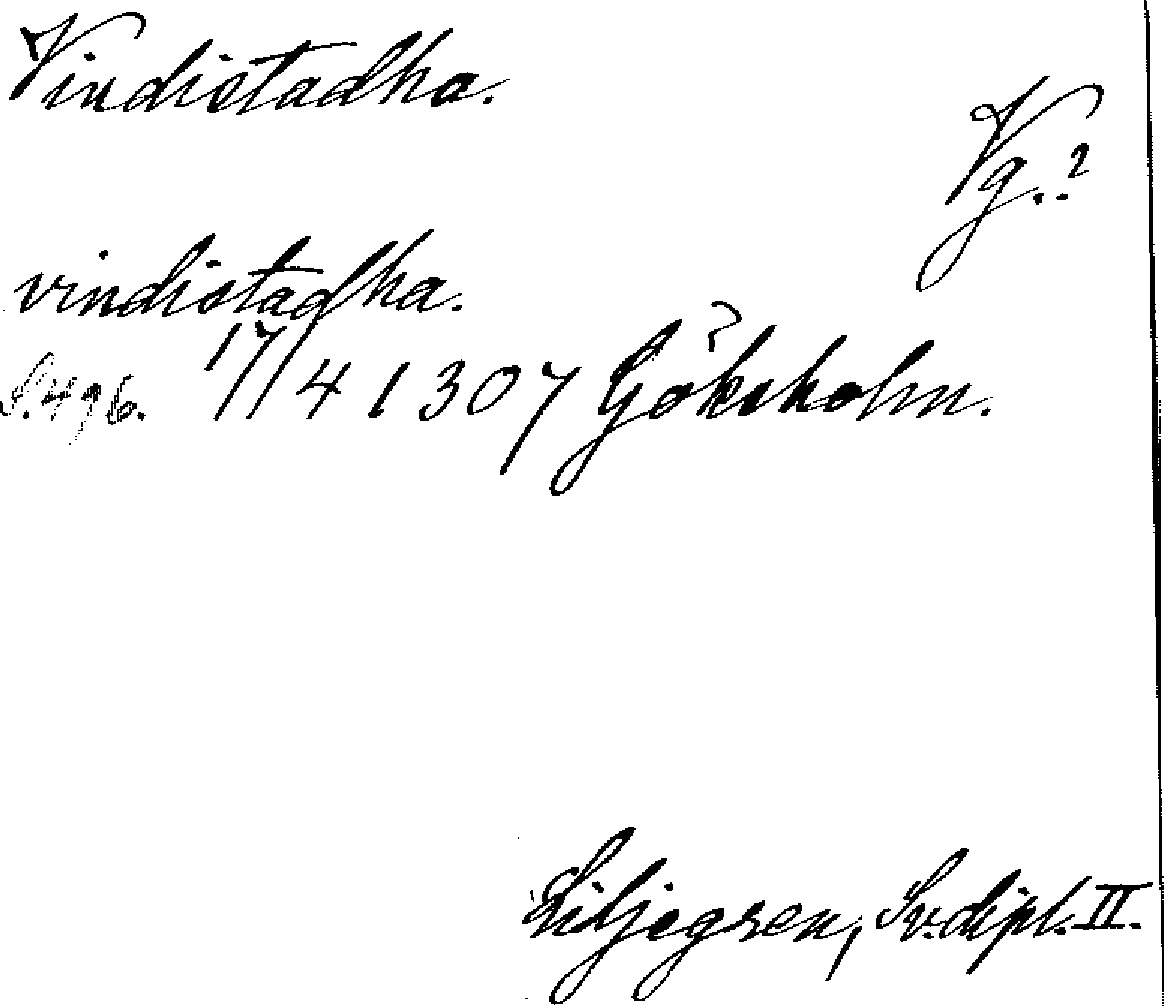 Vindistadha.
Vg.?
vindistadha.
S. 496. 17/4 1307 Göksholm.
Liljegren, Sv. dipl. II.